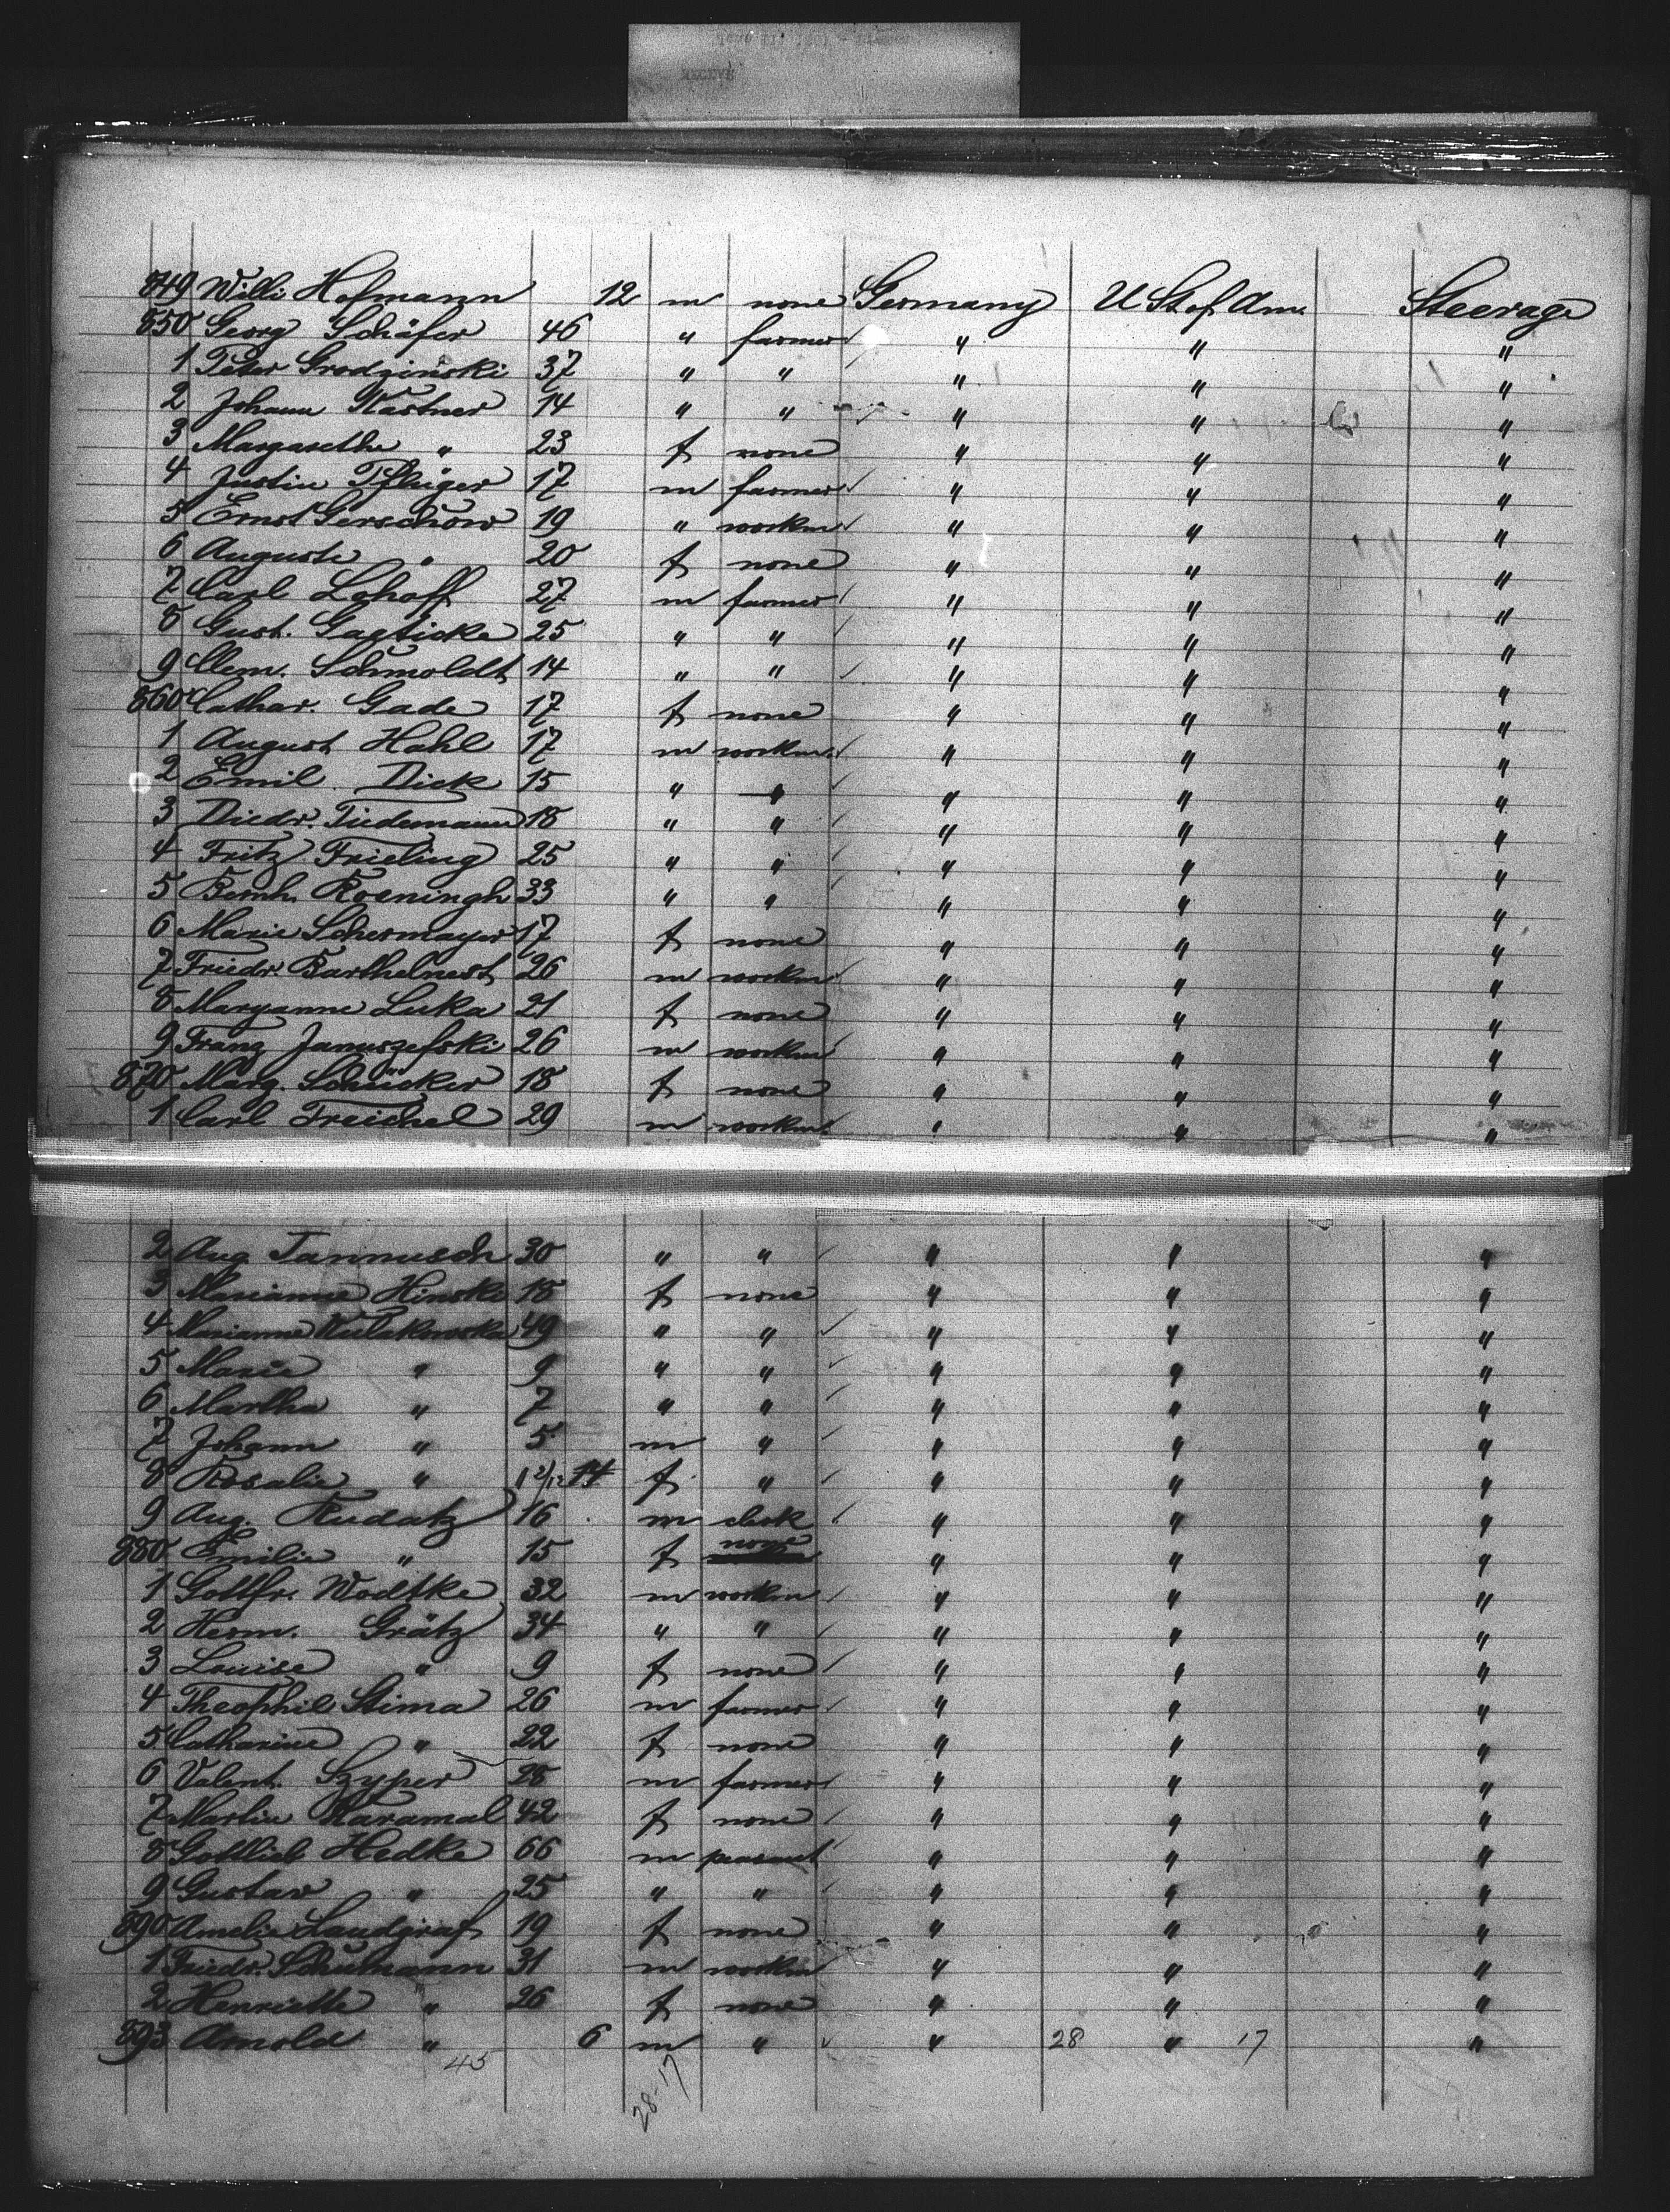 849 Willi Hofmann 12 m none Germany U St of Am. Steerage
850 Georg Schäfer 46 " farmer " " "
1 Peter Grodzinski 37 " " " " "
2 Johann Kästner 14 " " " " "
3 Margarethe " 23 f none " " "
4 Justin Pflüger 17 m farmer " " "
5 Ernst Gerschow 19 " workm " " "
6 Auguste " 20 f none " " "
7 Carl Lohoff 27 m farmer " " "
8 Gust. 25 " " " " "
9 Clem. Schmoldt 14 " " " " "
860 Cathar. Gade 17 f none " " "
1 August Hahl 17 m workm. " " "
2 Emil Dick 15 " " " " "
3 Diedr. Tiedemann 18 " " " " "
4 Fritz Frieling 25 " " " " "
5 Bernh. Roeningh 33 " " " " "
6 Marie Schermayer 17 f none " " "
7 Friedr. Barthelmest 26 m workm " " "
8 Maryanne Luka 21 f none " " "
9 Franz Januszefski 26 m workm " " "
870 Marg. Schücker 18 f none " " "
1 Carl Treichel 29 m workm. " " "
2 Aug. Tannusch 30 " " " " "
3 Marianne Hinski 18 f none " " "
4 Marianne Kulakowska 49 " " " " "
5 Marie " 9 " " " " "
6 Martha " 7 " " " " "
7 Johann " 5 m " " " "
8 Rosalie " 1 2/12 14 f " " " "
9 Aug. Kudatz 16 m clerk " " "
880 Emilie " 15 f none " " "
1 Gottfr. Wodtke 32 m workm " " "
2 Herm. Grätz 34 " " " " "
3 Louise " 9 f none " " "
4 Theophil Slima 26 m farmer " " "
5 Catharine " 22 f none " " "
6 Valent. Szyper 28 m farmer " " "
7 Karamal 42 f none " " "
8 Gottlieb Hedke 66 m peasant " " "
9 Gustav " 25 " " " " "
890 Amelie Landgraf 19 f none " " "
1 Friedr. Schumann 31 m workm " " "
2 Henriette " 26 f none " " "
893 Arnold " 6 m " " 28 " 17 "
45
28-17